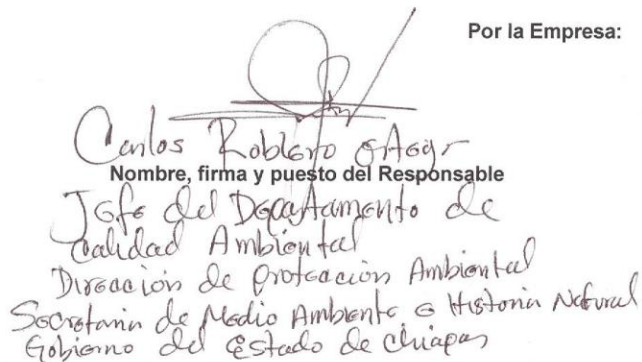 Por la Empresa:
Carlos Roblero
Nombre, firma y puesto del Responsable
Jefe del Departamento de
Calidad Ambiental
Dirección de Protección Ambiental
Secretaría de Medio Ambiente e Historia Natural
Gobierno del Estado de Chiapas